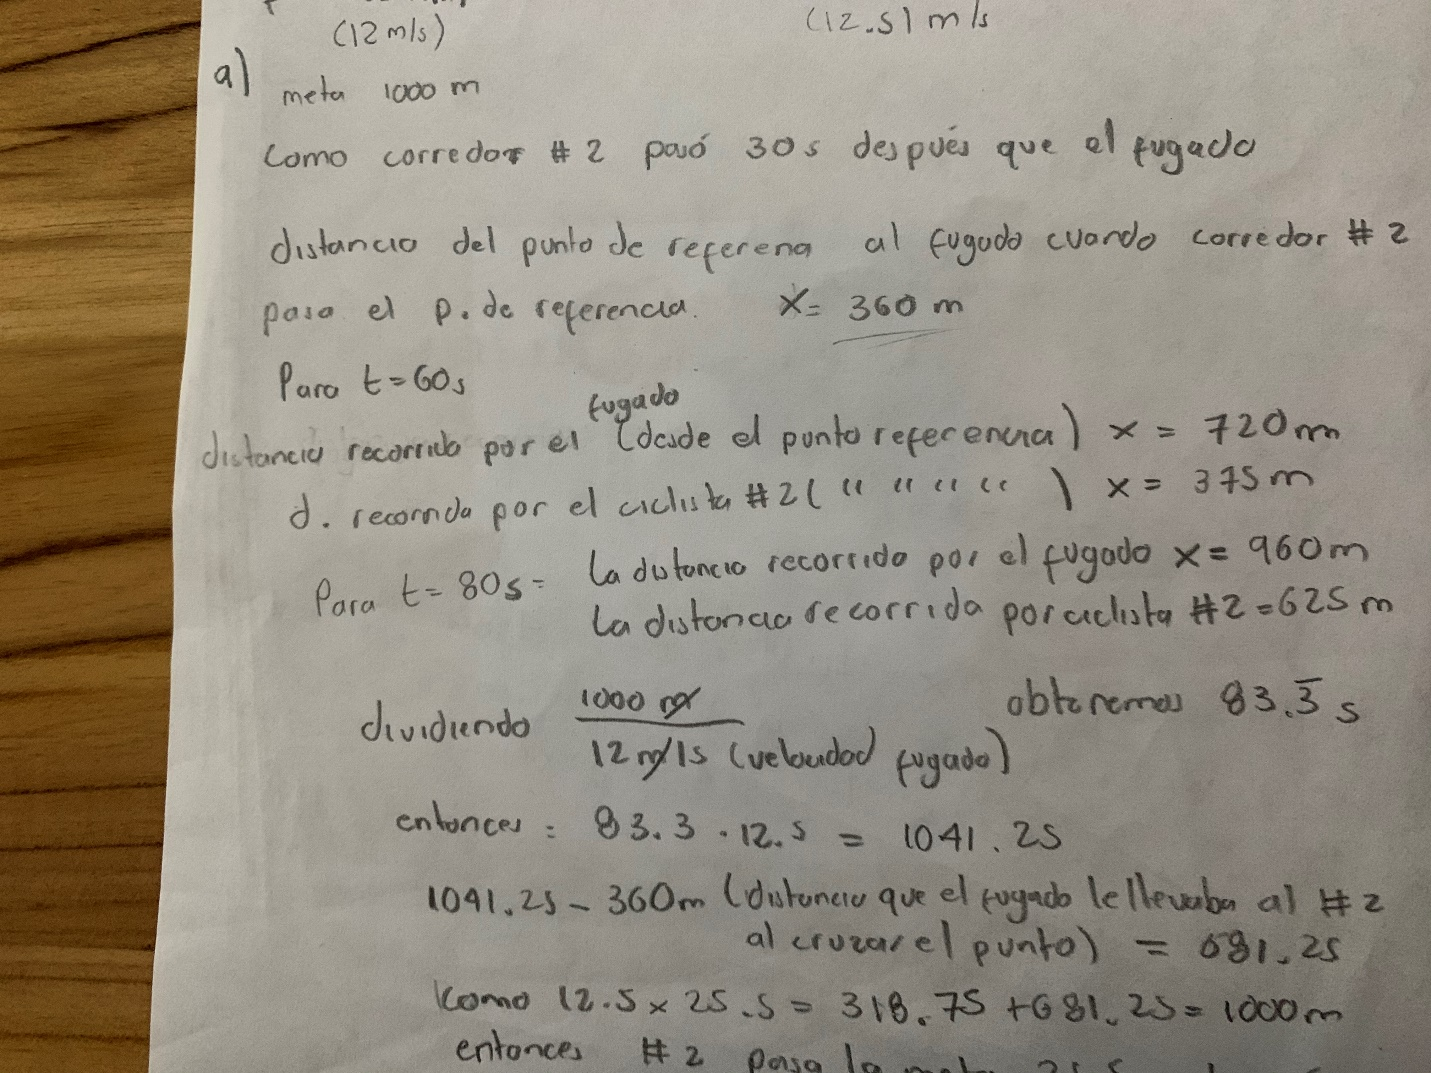 (12 m/s)
(12.5) m/s
a)
meta 1000 m
Como corredor # 2 pasó 30 s después que el fugado
distancia del punto de referena al fugado cuando corredor # 2
pasa el p. de referencia. X= 360 m
Para t=60s
fugado
distancia recorrido por el (desde el punto referencia) x = 720m
d. recorrida por el ciclista #2 ( " " " " ) x = 375 m
Para t= 80s = La distancia recorrido por el fugado x = 960m
La distancia recorrida por ciclista #2 = 625 m
dividiendo 1000 m
12 m/s (velocidad fugado)
obtenemos 83.3̅ s
entonces : 83.3 . 12.5 = 1041.25
1041.25 - 360m (distancia que el fugado le llevaba al # 2
al cruzar el punto) = 681.25
Como 12.5 x 25.5 = 318.75 + 681.25 = 1000m
entonces # 2 pasa la